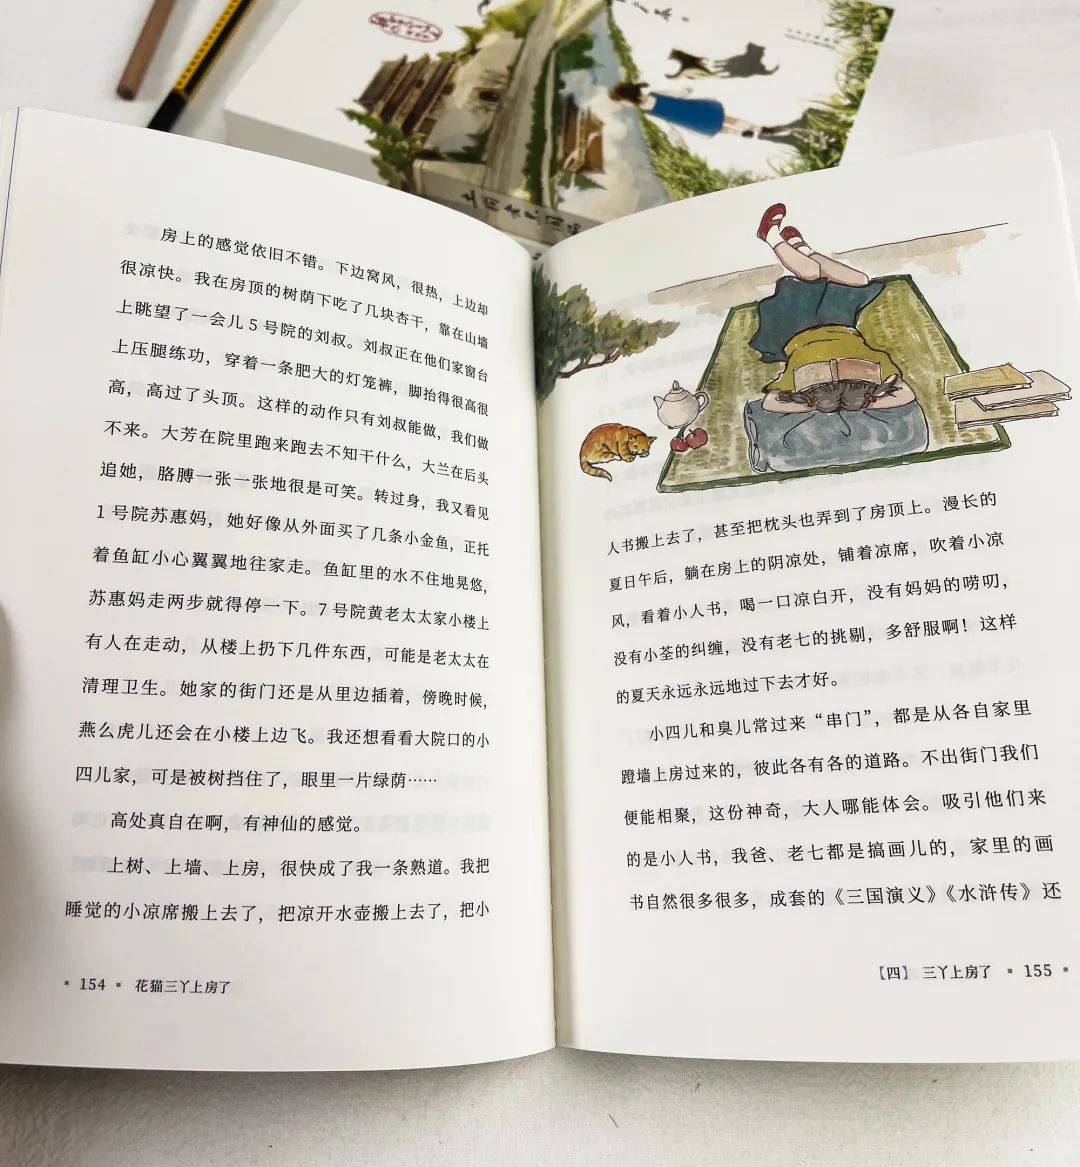 房上的感觉依旧不错。下边窝风，很热，上边却
很凉快。我在房顶的树荫下吃了几块杏干，靠在山墙
上眺望了一会儿5号院的刘叔。刘叔正在他们家窗台
上压腿练功，穿着一条肥大的灯笼裤，脚抬得很高很
高，高过了头顶。这样的动作只有刘叔能做，我们做
不来。大芳在院里跑来跑去不知干什么，大兰在后头
追她，胳膊一张一张地很是可笑。转过身，我又看见
1号院苏惠妈，她好像从外面买了几条小金鱼，正托
着鱼缸小心翼翼地往家走。鱼缸里的水不住地晃悠，
苏惠妈走两步就得停一下。7号院黄老太太家小楼上
有人在走动，从楼上扔下几件东西，可能是老太太在
清理卫生。她家的街门还是从里边插着，傍晚时候，
燕么虎儿还会在小楼上边飞。我还想看看大院口的小
四儿家，可是被树挡住了，眼里一片绿荫……
高处真自在啊，有神仙的感觉。
上树、上墙、上房，很快成了我一条熟道。我把
睡觉的小凉席搬上去了，把凉开水壶搬上去了，把小
154 花猫三丫上房了
人书搬上去了，甚至把枕头也弄到了房顶上。漫长的
夏日午后，躺在房上的阴凉处，铺着凉席，吹着小凉
风，看着小人书，喝一口凉白开，没有妈妈的唠叨，
没有小荃的纠缠，没有老七的挑剔，多舒服啊！这样
的夏天永远永远地过下去才好。
小四儿和臭儿常过来“串门”，都是从各自家里
蹬墙上房过来的，彼此各有各的道路。不出街门我们
便能相聚，这份神奇，大人哪能体会。吸引他们来
的是小人书，我爸、老七都是搞画儿的，家里的画
书自然很多很多，成套的《三国演义》《水浒传》还
【四】 三丫上房了 155